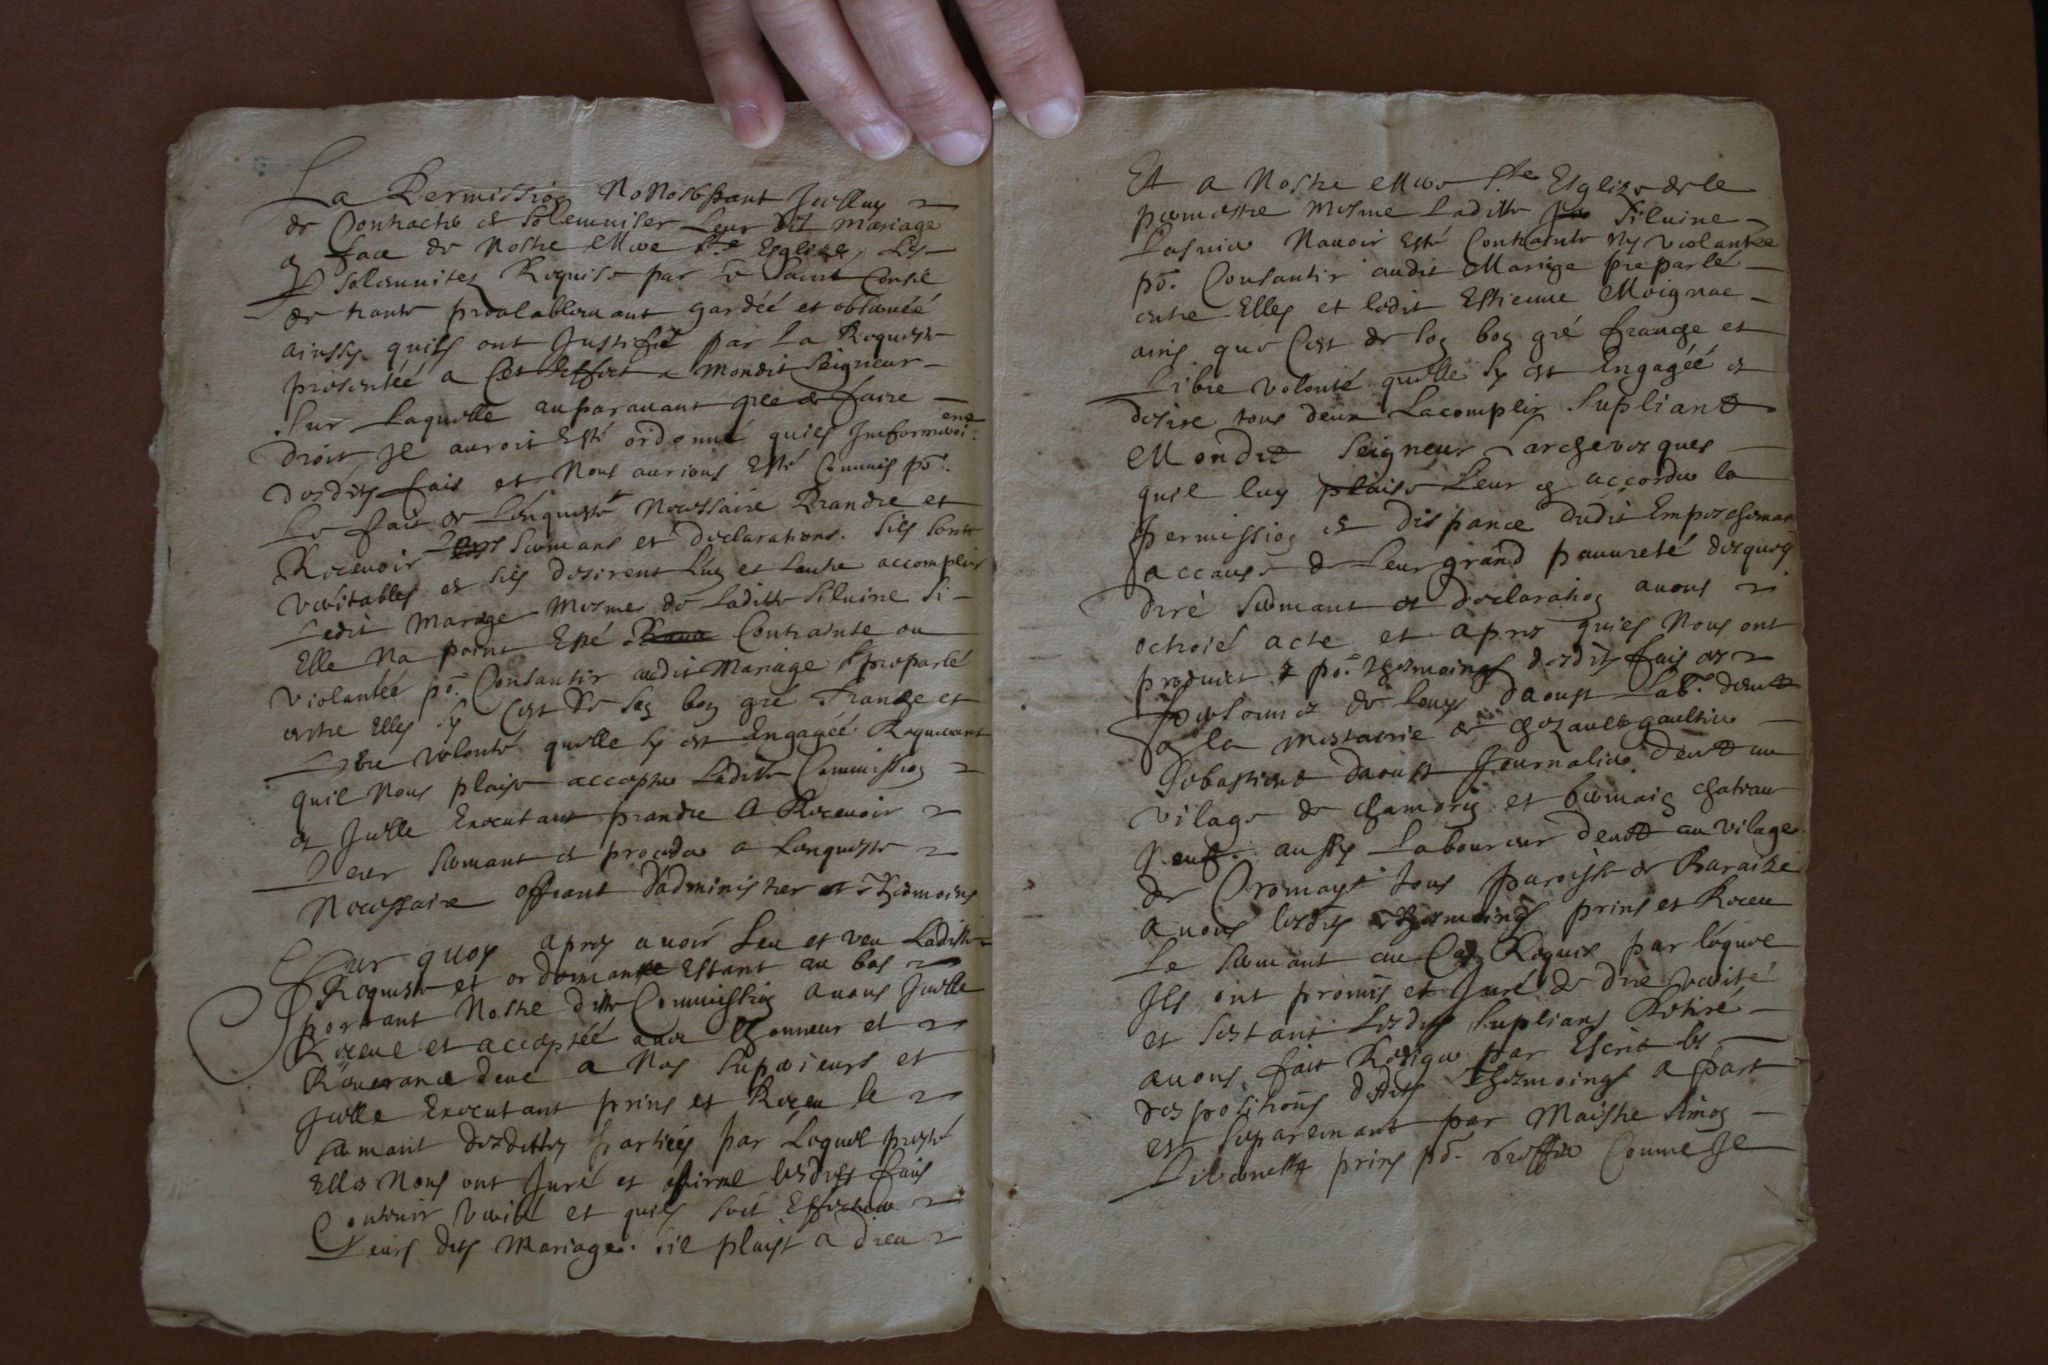 La Permission Nonobstant Icelluy
de Contracter et solemniser Leur dit mariage
en face de Nostre Mere Ste Esglize, Les
solemnitez Requise par le Saint Consile
de trante prealablemant gardéé et observéé
ainssy quils ont Justifié par La Requeste
presentéé a Cet Effect a mondit Seigneur
Sur Laquelle auparavant que de faire
droit Il auroit Esté ordonné quils Informeroi
ent
desdits fais et Nous aurions Esté Commis po.
Le fait de Lenqueste Necessaire Prandre et
Recevoir Leurs sermans et declarations. Sils sont
veritables et sils desirent Lun et Lautre accomplir
Ledit mariage mesme de Laditte Silvine Si
Elle Na point Esté Contrainte ou
violantéé po. Consantir audit Mariage preparlé
entre Elles sy Cest De son bon gré franche et
Libre volonté quelle sy est Engagéé Requerant
quil Nous plaise accepter Laditte Commission
et Icelle Executant prandre & Recevoir
Leur sermant et proceder a Lenqueste
Necessaire offrant D'administrer Thesmoins
Sur quoy apres avoir Leu et veu Laditte
Requeste et ordonnance Estant au bas
portant Nostre ditte Commission avons Icelle
Receue et acceptéé avec Lhonneur et
Reverance deue a Nos superieurs et
Icelle Executant prins et Receu le
sermant desdittes partiees par Lequel presté
Elles Nous ont Juré et afirmé lesdits fais
Contenir verité et quils soit Effectuer
Leurs dits Mariage. sil plaist a Dieu
Et a Nostre Mere Ste Esglize de le
permettre mesme Laditte Silvine
Lasnier Navoir Esté Contrainte Ny violantée
po. Consantir audit Mariage preparlé
entre Elles et ledit Estienne Moignac
ains que Cest de son bon gré franche et
Libre volonté quelle sy est Engagéé et
desire tous deux Lacomplir Supliant
Mondit Seigneur Larchevesques
quil luy plaise Leur en accorder la
permission et dispance dudit Empeschemant
accause de Leur grand pauvreté desquoy
diré sermant et declaration avons
octroié acte et apres quils Nous ont
produict po. thesmoings desdits fais es
personnes de Louys daoust Lab. demt
en la mestairie de chezaulx gaultier
Sebastient daoust Journalier demt au
vilage de chamorin et Germain chateau
neuf aussy Laboureur demt au vilage
de Cromays tous paroisse de Baraize
avons lesdits Thesmoings prins et Receu
Le sermant au Cas Requis par lequel
Ils ont promis et Juré de dire verité
et sestant Lesdits suplians Retiré
avons fait Rediger par Escrit les
despositions desdits Thesmoings a part
et separemant par Maistre Simon
prins po. Greffier Comme Je